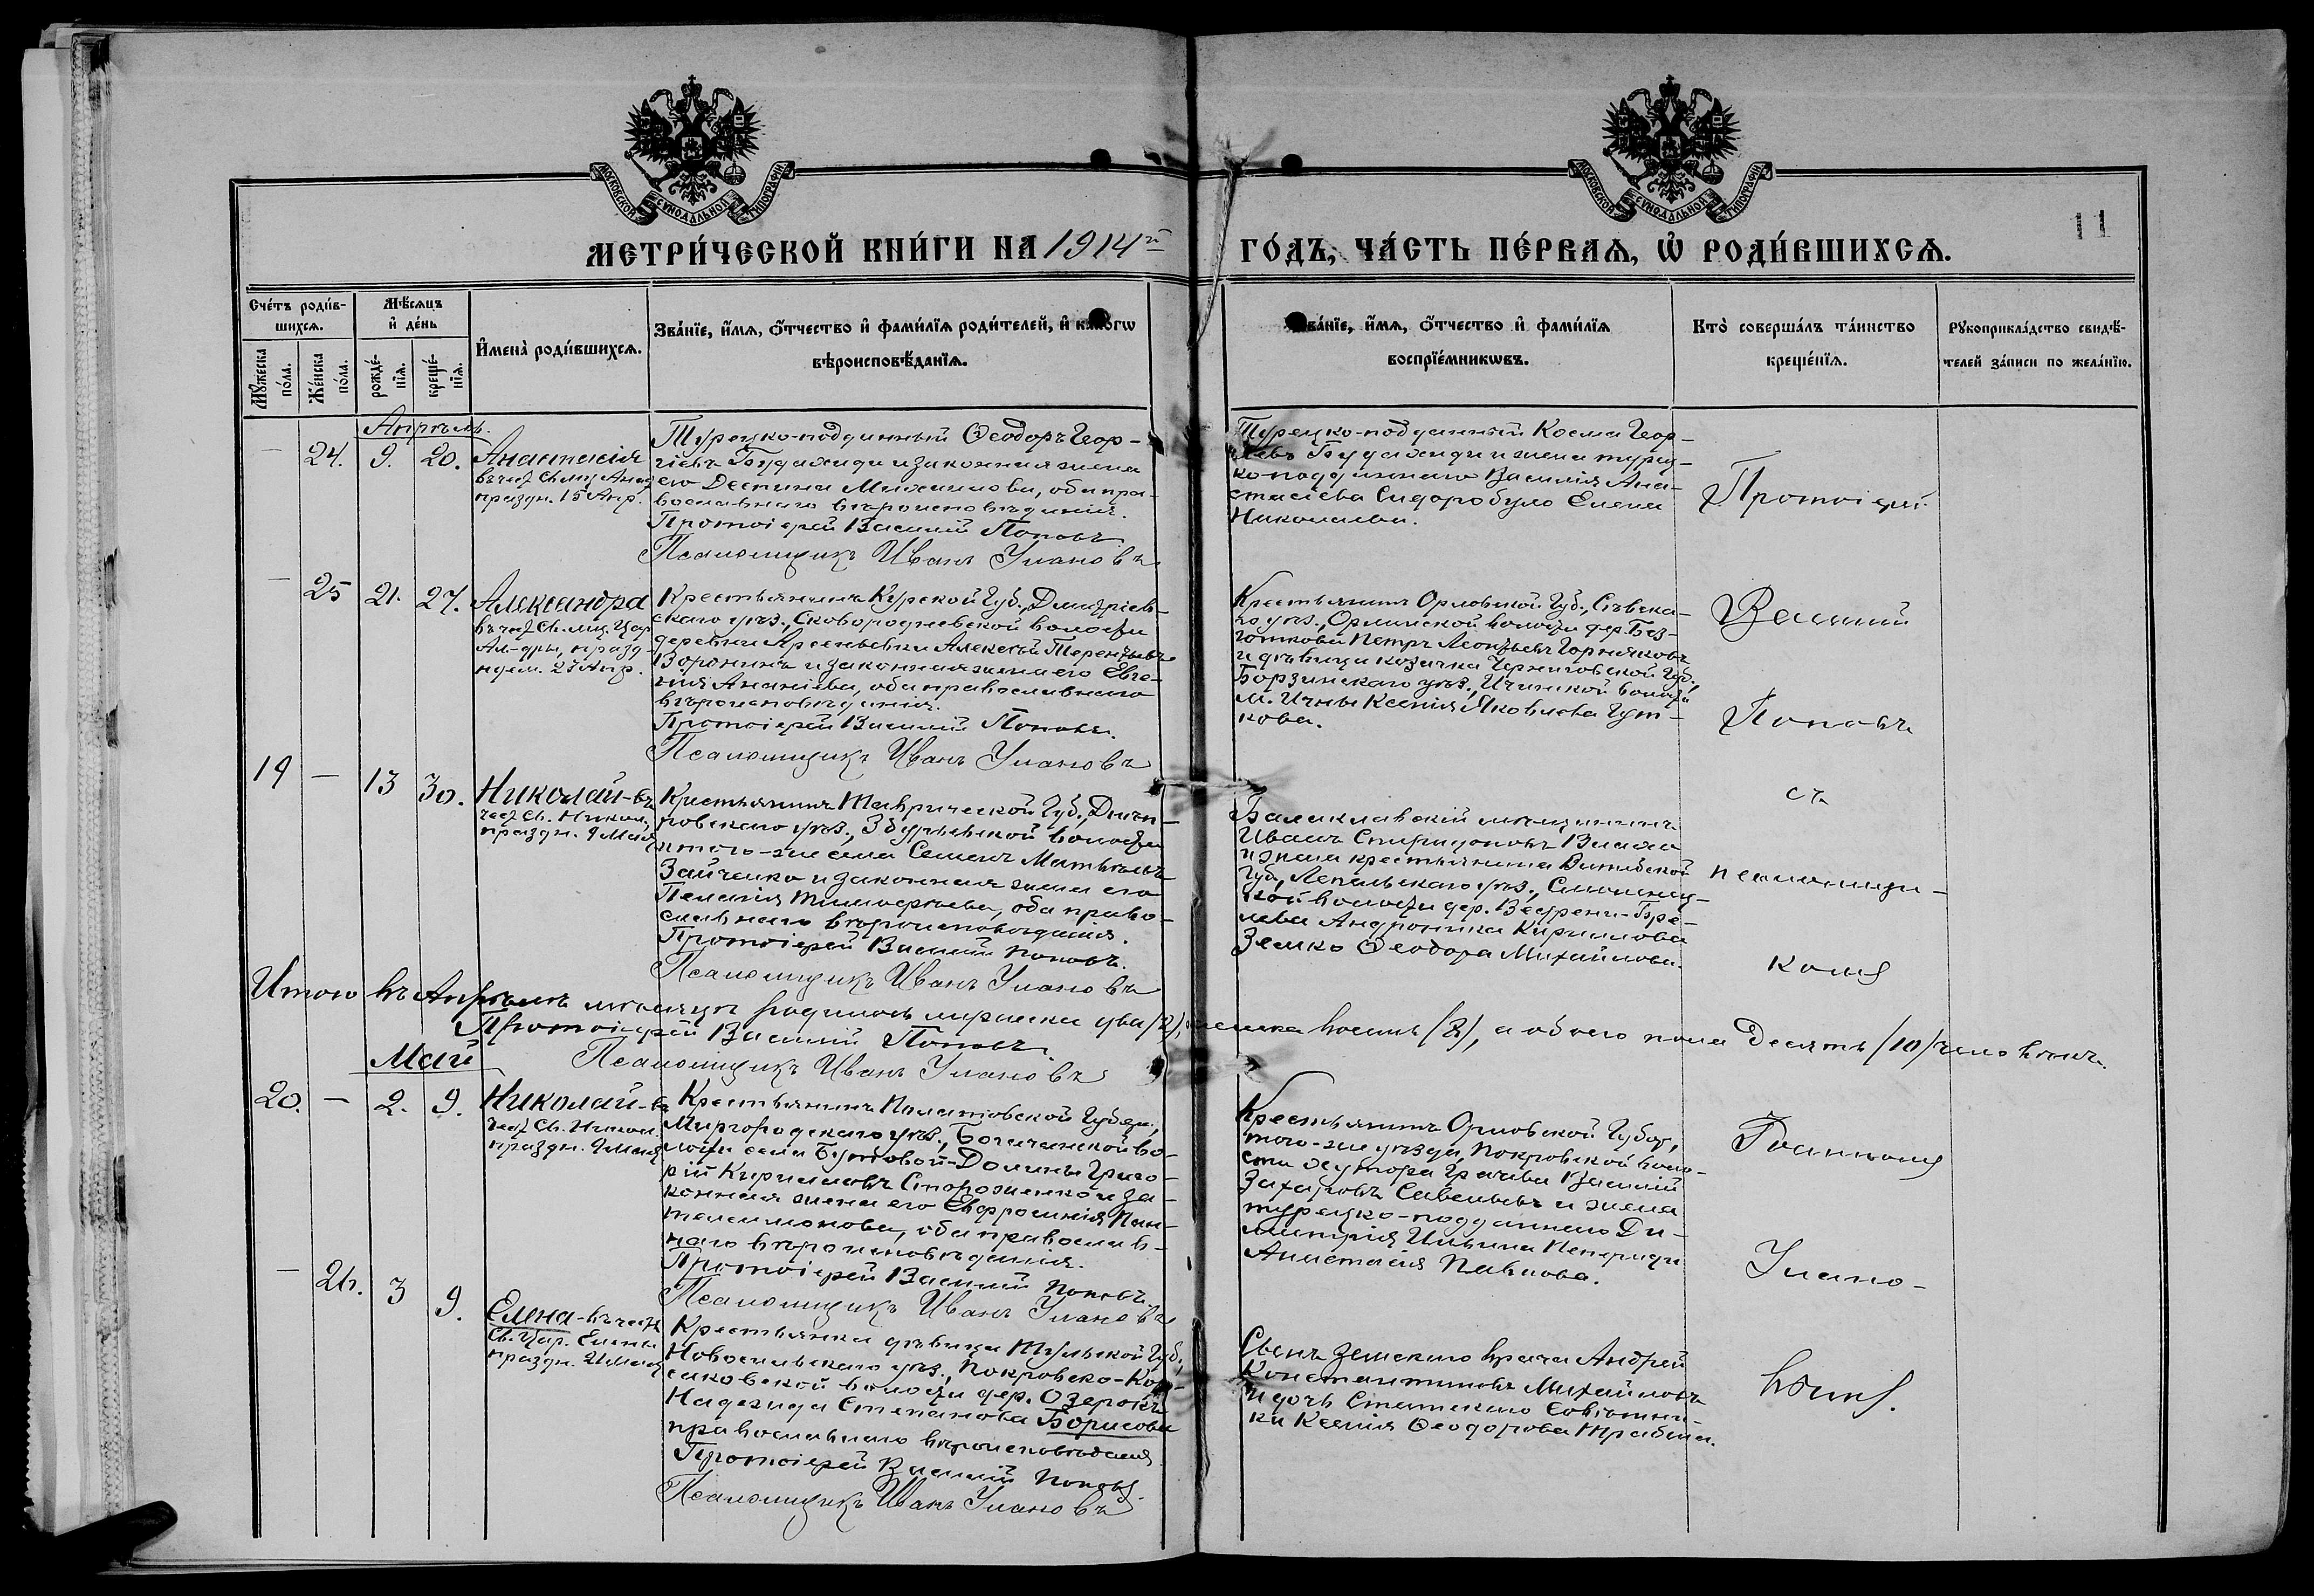 МОСКОВСКОЙ СѴНОДАЛЬНОЙ ТИПОГРАФІИ
МОСКОВСКОЙ СѴНОДАЛЬНОЙ ТИПОГРАФІИ
11
МЕТРИ́ЧЕСКОЙ КНИ́ГИ НА 1914й ГО́ДЪ, ЧА́СТЬ ПЕ́РВАѦ, Ѡ҆ РОДИ́ВШИХСѦ.
Сче́тъ роди́в-
шихсѧ.
Мꙋ́жеска по́ла.
Же́нска по́ла.
Мѣ́сѧцъ
и҆ де́нь
рожде́-
нїѧ.
креще́-
нїѧ.
И҆мена̀ роди́вшихсѧ.
Зва́нїе, и҆́мѧ, ѻ҆́тчество и҆ фами́лїѧ роди́телей, и҆ како́гѡ
вѣроисповѣ́данїѧ.
Зва́нїе, и҆́мѧ, ѻ҆́тчество и҆ фами́лїѧ
воспрїе́мникѡвъ.
Кто̀ соверша́лъ та́инство
креще́нїѧ.
Рꙋкоприкла́дство свидѣ́-
телей за́писи по жела́нїю.
Апрѣль.
— 24. 9. 20.
Анастасія
въ чест. Св. муч. Анаст.
праздн. 15 Апр.
Турецко-подданный Ѳеодоръ Геор-
гіевъ Будахиди и законная жена
его Деспина Михаилова, оба пра-
вославнаго вѣроисповѣданія.
Протоіерей Василій Поповъ
Псаломщикъ Иванъ Улановъ
Турецко-подданный Косма Геор-
гіевъ Будахиди и жена турец-
ко-подданнаго Василія Ана-
стасіева Сидоробуло Елена
Николаева.
Протоіерей
— 25 21. 27.
Александра
въ чест. Св. муч. Цар.
Ал-дры, празд-
нуем. 23 Апр.
Крестьянинъ Курской Губ., Дмитріев-
скаго уѣз., Сковородневской волости
деревни Арсеньевки Алексѣй Терентьевъ
Воронинъ и законная жена его Евге-
нія Ананіева, оба православнаго
вѣроисповѣданія.
Протоіерей Василій Поповъ.
Псаломщикъ Иванъ Улановъ
Крестьянинъ Орловской Губ., Сѣвска-
го уѣз., Орлинской волости дер. Без-
готковой Петръ Леонтьевъ Горняковъ
и дѣвица козачка Черниговской Губ.,
Борзинскаго уѣз., Ичинской волости
м. Ични Ксенія Яковлева Гут-
кова.
Василій
Поповъ
19 — 13 30.
Николай-въ
чест. Св. Никол.,
праздн. 9 Мая
Крестьянинъ Таврической Губ., Днѣп-
ровскаго уѣз., Збурьевской волости
и того-же села Семенъ Матѣевъ
Зайченко и законная жена его
Пелагія Тимофѣева, оба право-
славнаго вѣроисповѣданія.
Протоіерей Василій Поповъ.
Псаломщикъ Иванъ Улановъ
Балаклавскій мѣщанинъ
Иванъ Спиридоновъ Влахо
и жена крестьянина Витебской
Губ., Лепельскаго уѣз.,
кой волости дер.
Андроника Кириллова
Земко Ѳеодора Михайлова.
съ
псаломщи-
комъ
Итого въ Апрѣлѣ мѣсяцѣ родилось мужеска два (2), женска восемь (8), а обоего пола десять (10) человѣкъ.
Протоіерей Василій Поповъ
Псаломщикъ Иванъ Улановъ
Май
20. — 2. 9.
Николай-въ
чест. Св. Никол.
праздн. 9 Мая
Крестьянинъ Полтавской Губерн.,
Миргородскаго уѣз., Богачанской во-
лости села Бутовой-Долины Григо-
рій Кирилловъ Стороженко и за-
конная жена его Евфросинія Пан-
телеимонова, оба православ-
наго вѣроисповѣданія.
Протоіерей Василій Поповъ.
Псаломщикъ Иванъ Улановъ
Крестьянинъ Орловской Губер.,
того-же уѣзда, Покровской воло-
сти хутора Грачева Василій
Захаровъ Савельевъ и жена
турецко-подданнаго Ди-
митрія Ильина Пепериди
Анастасія Павлова.
Іоанномъ
Улано-
— 26. 3 9.
Елена-въ чест.
Св. Цар. Елены
праздн. 21 Мая
Крестьянка дѣвица Тульской Губ.,
Новосильскаго уѣз., Покровско-Кор-
саковской волости дер. Озерокъ
Надежда Степанова Борисова
православнаго вѣроисповѣданія
Протоіерей Василій Поповъ.
Псаломщикъ Иванъ Улановъ
Сынъ земскаго врача Андрей
Константиновъ Михайловъ
и дочь Статскаго Совѣтни-
ка Ксенія Ѳеодорова Трабша.
вымъ.